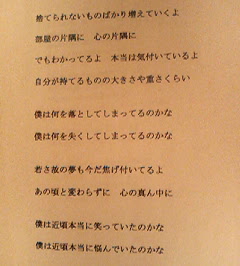 捨てられないものばかり増えていくよ
部屋の片隅に 心の片隅に
でもわかってるよ 本当は気付いているよ
自分が持てるものの大きさや重さくらい
僕は何を落としてしまってるのかな
僕は何を失くしてしまってるのかな
若さ故の夢も今だ焦げ付いてるよ
あの頃と変わらずに 心の真ん中に
僕は近頃本当に笑っていたのかな
僕は近頃本当に悩んでいたのかな